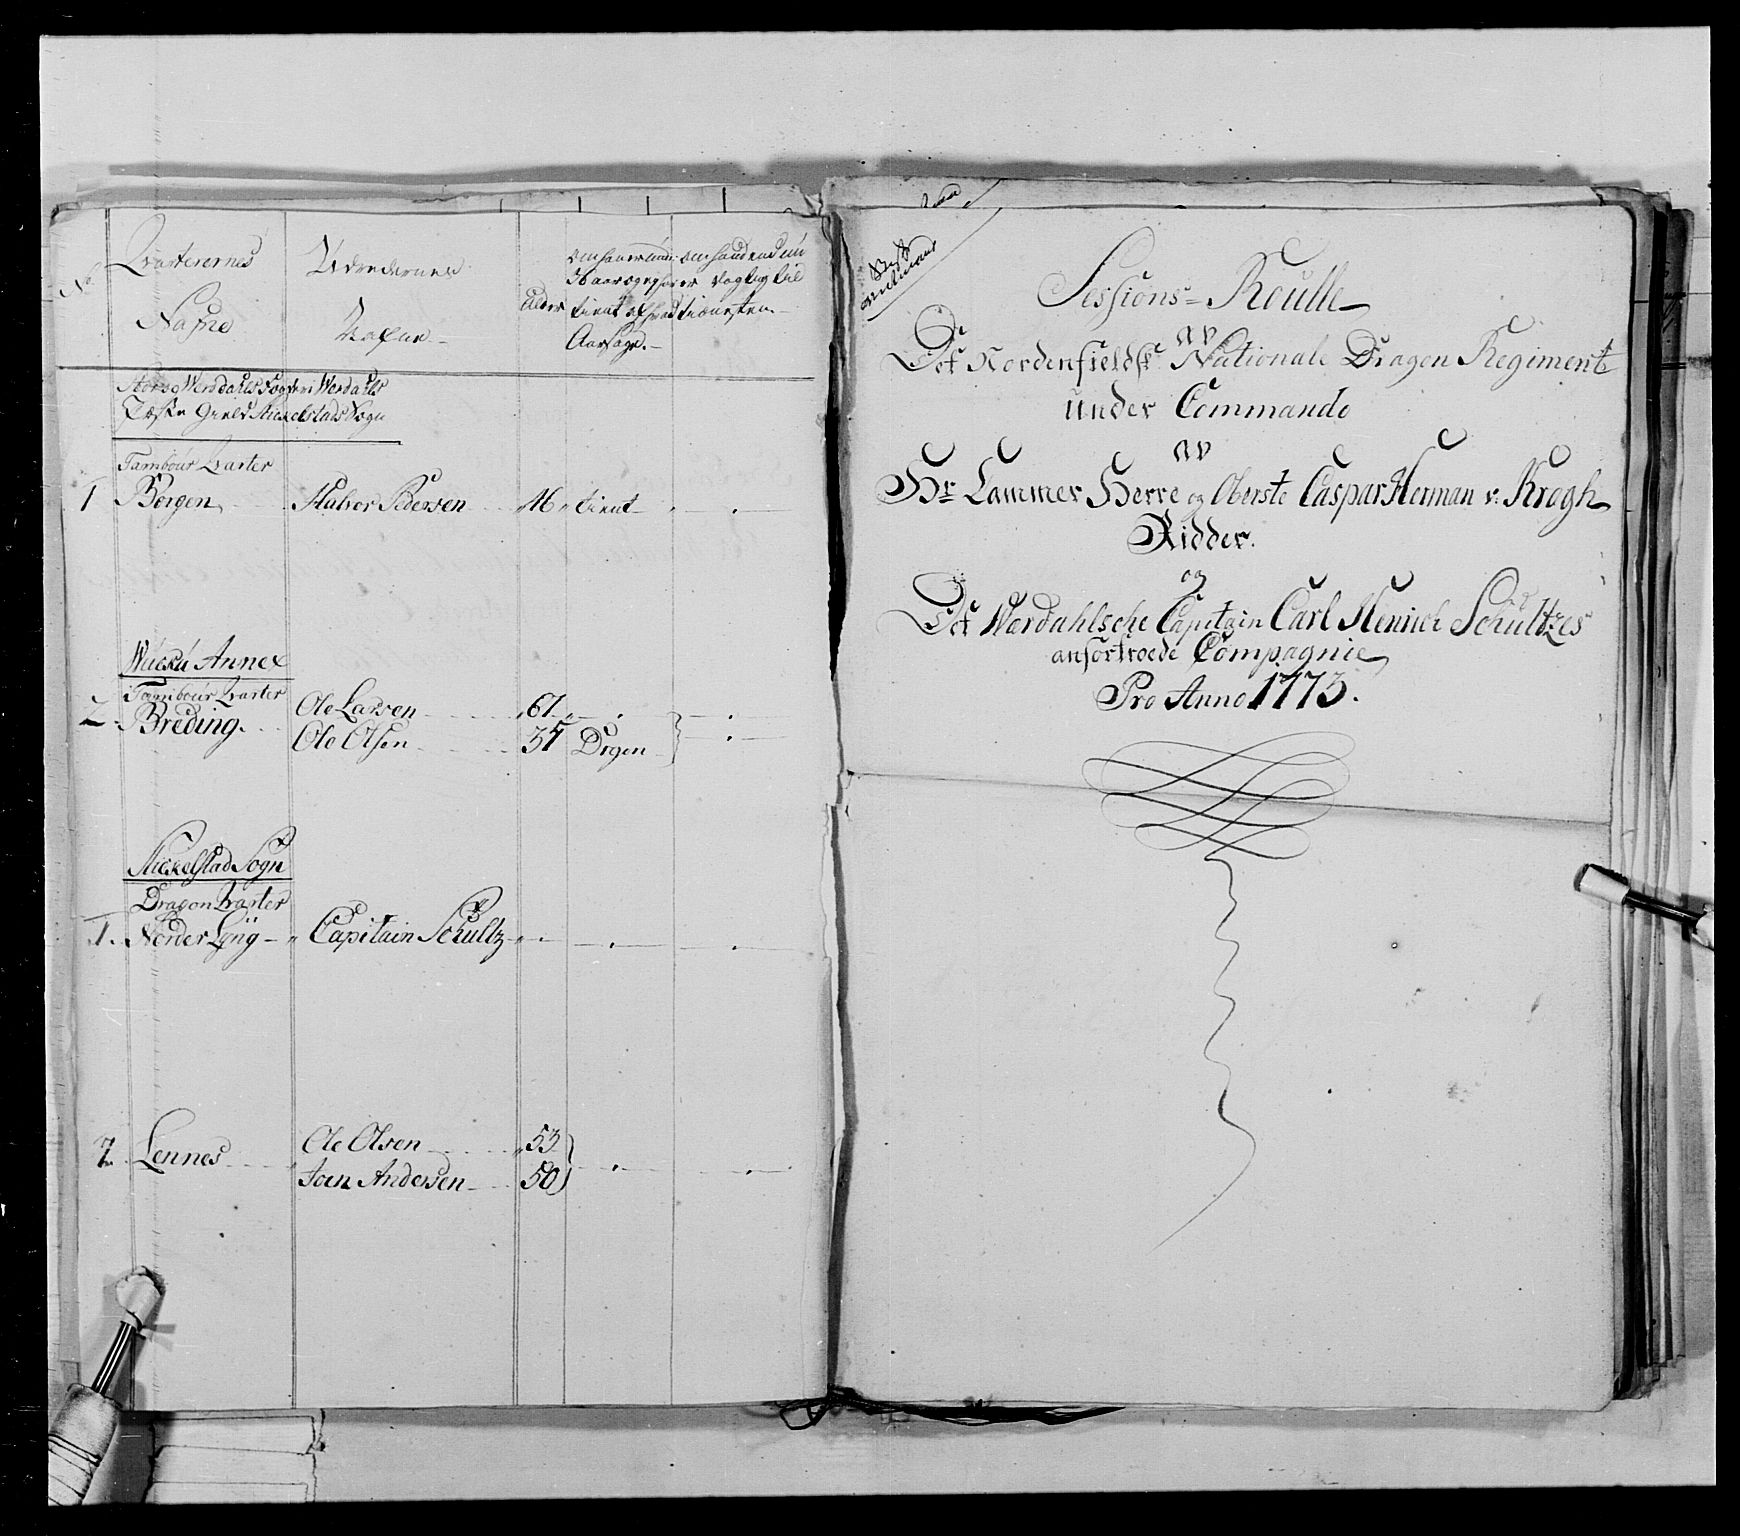 No
Qvarterernes
Nafne
Udredernes
Nafne
Alder
Om hand er
tient
Aarsage.
tienesten
Stor og Werdahls Wærdahls
Gield Stickelstads Sogn
Tambour Qvarter
1 Borgen Halvor Pedersen 46 tient
Wucku Annex
Tambour Qvarter
2 Breding. Ole Larsen 61
Ole Olsen 34 Dragon
Stickelstad Sogn
Dragon Qvarter
1. Norder Lÿng Capitain Schultz
2 Lennes Ole Olsen 53
Joen Andersen 50
Sessions-Roulle
av
Det Nordenfieldske Nationale Dragon Regiment
under Commando
av
Hr Cammer Herre og Oberste Caspar Herman v: Krogh
Ridder.
og
Det Werdahlsche Capitain Carl Henrich Schultzes
anfortroede Compagnie
Pro Anno 1773.